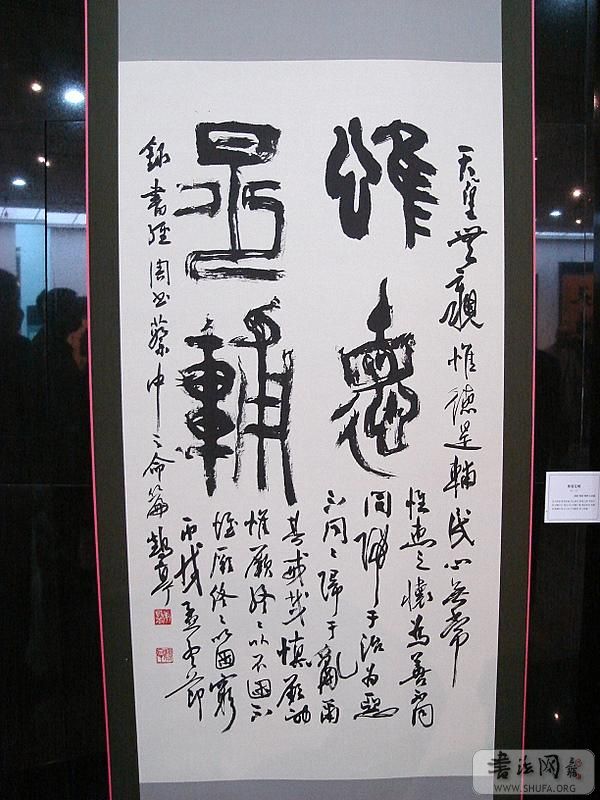 惟德
是輔
天皇無親惟德是輔民心無常
惟惠之懷為善不同
同歸于治為惡
不同〻歸于亂爾
其戒哉慎厥初
惟厥終〻以不困不
惟厥終〻以困窮
錄書經周書蔡仲之命篇
书法网
WWW.SHUFA.ORG